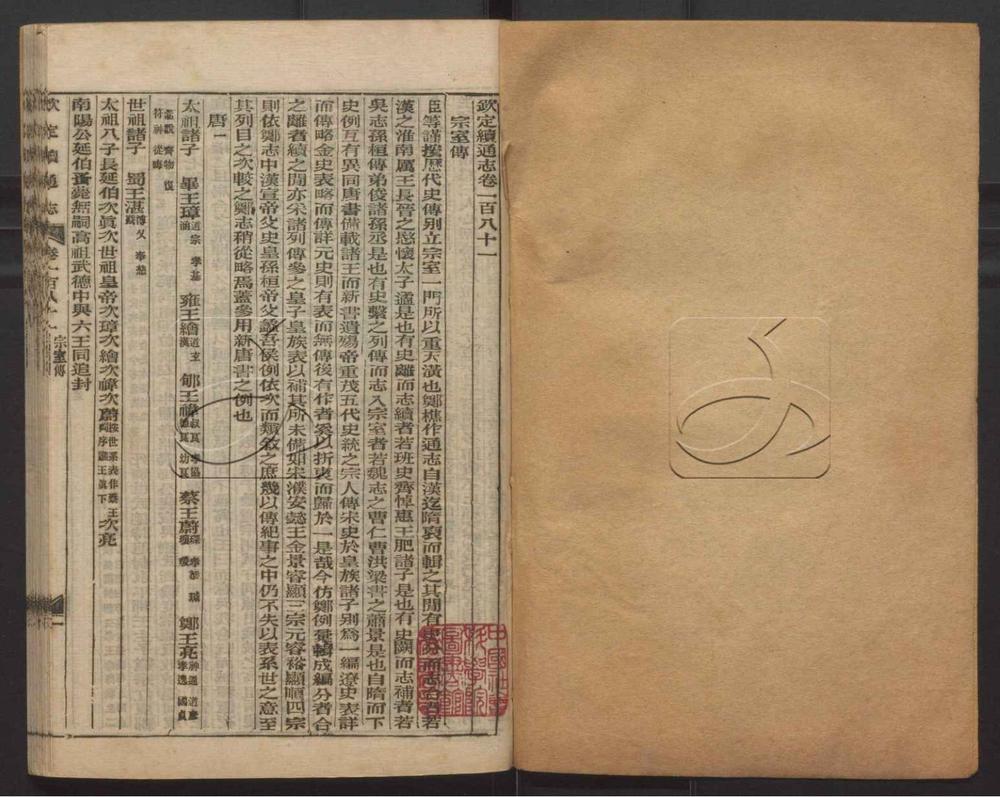 欽定續通志卷一百八十一
宗室傳
臣等謹按歷代史傳別立宗室一門所以重天潢也鄭樵作通志自漢迄隋裒而輯之其閒有史分而志合者若
漢之淮南厲王長晉之愍懷太子遹是也有史離而志續者若班史齊悼惠王肥諸子是也有史闕而志補者若
吳志孫桓傳弟俊諸孫丞是也有史繫之列傳而志入宗室者若魏志之曹仁曹洪梁書之蕭景是也自隋而下
史例互有異同唐書備載諸王而新書遺殤帝重茂五代史統之宗人傳宋史於皇族諸子別爲一編遼史表詳
而傳略金史表略而傳詳元史則有表而無傳後有作者奚以折衷而歸於一是哉今仿鄭例彙輯成編分者合
之離者續之閒亦采諸列傳參之皇子皇族表以補其所未備如宋濮安懿王金景宣睿顯三宗元睿裕顯順四宗
則依鄭志中漢宣帝父史皇孫桓帝父蠡吾侯例依次而類敘之庶幾以傳紀事之中仍不失以表系世之意至
其列目之次較之鄭志稍從略焉蓋參用新唐書之例也
唐一
太祖諸子 畢王璋 道宗 孝基 涵 雍王繪 道玄 漢 郇王禕 叔良 孝協 德良 幼良 蔡王蔚 琛 孝恭 瑊 瓌 鄭王亮 神通 道彥 孝逸 國貞
孝銳 齊物 復 符 神符 從晦
世祖諸子 蜀王湛 博乂 奉慈
太祖八子長延伯次眞次世祖皇帝次璋次繪次禕次蔚 次亮
南陽公延伯蚤薨無嗣高祖武德中與六王同追封
欽定續通志 卷一百八十一 宗室傳 一